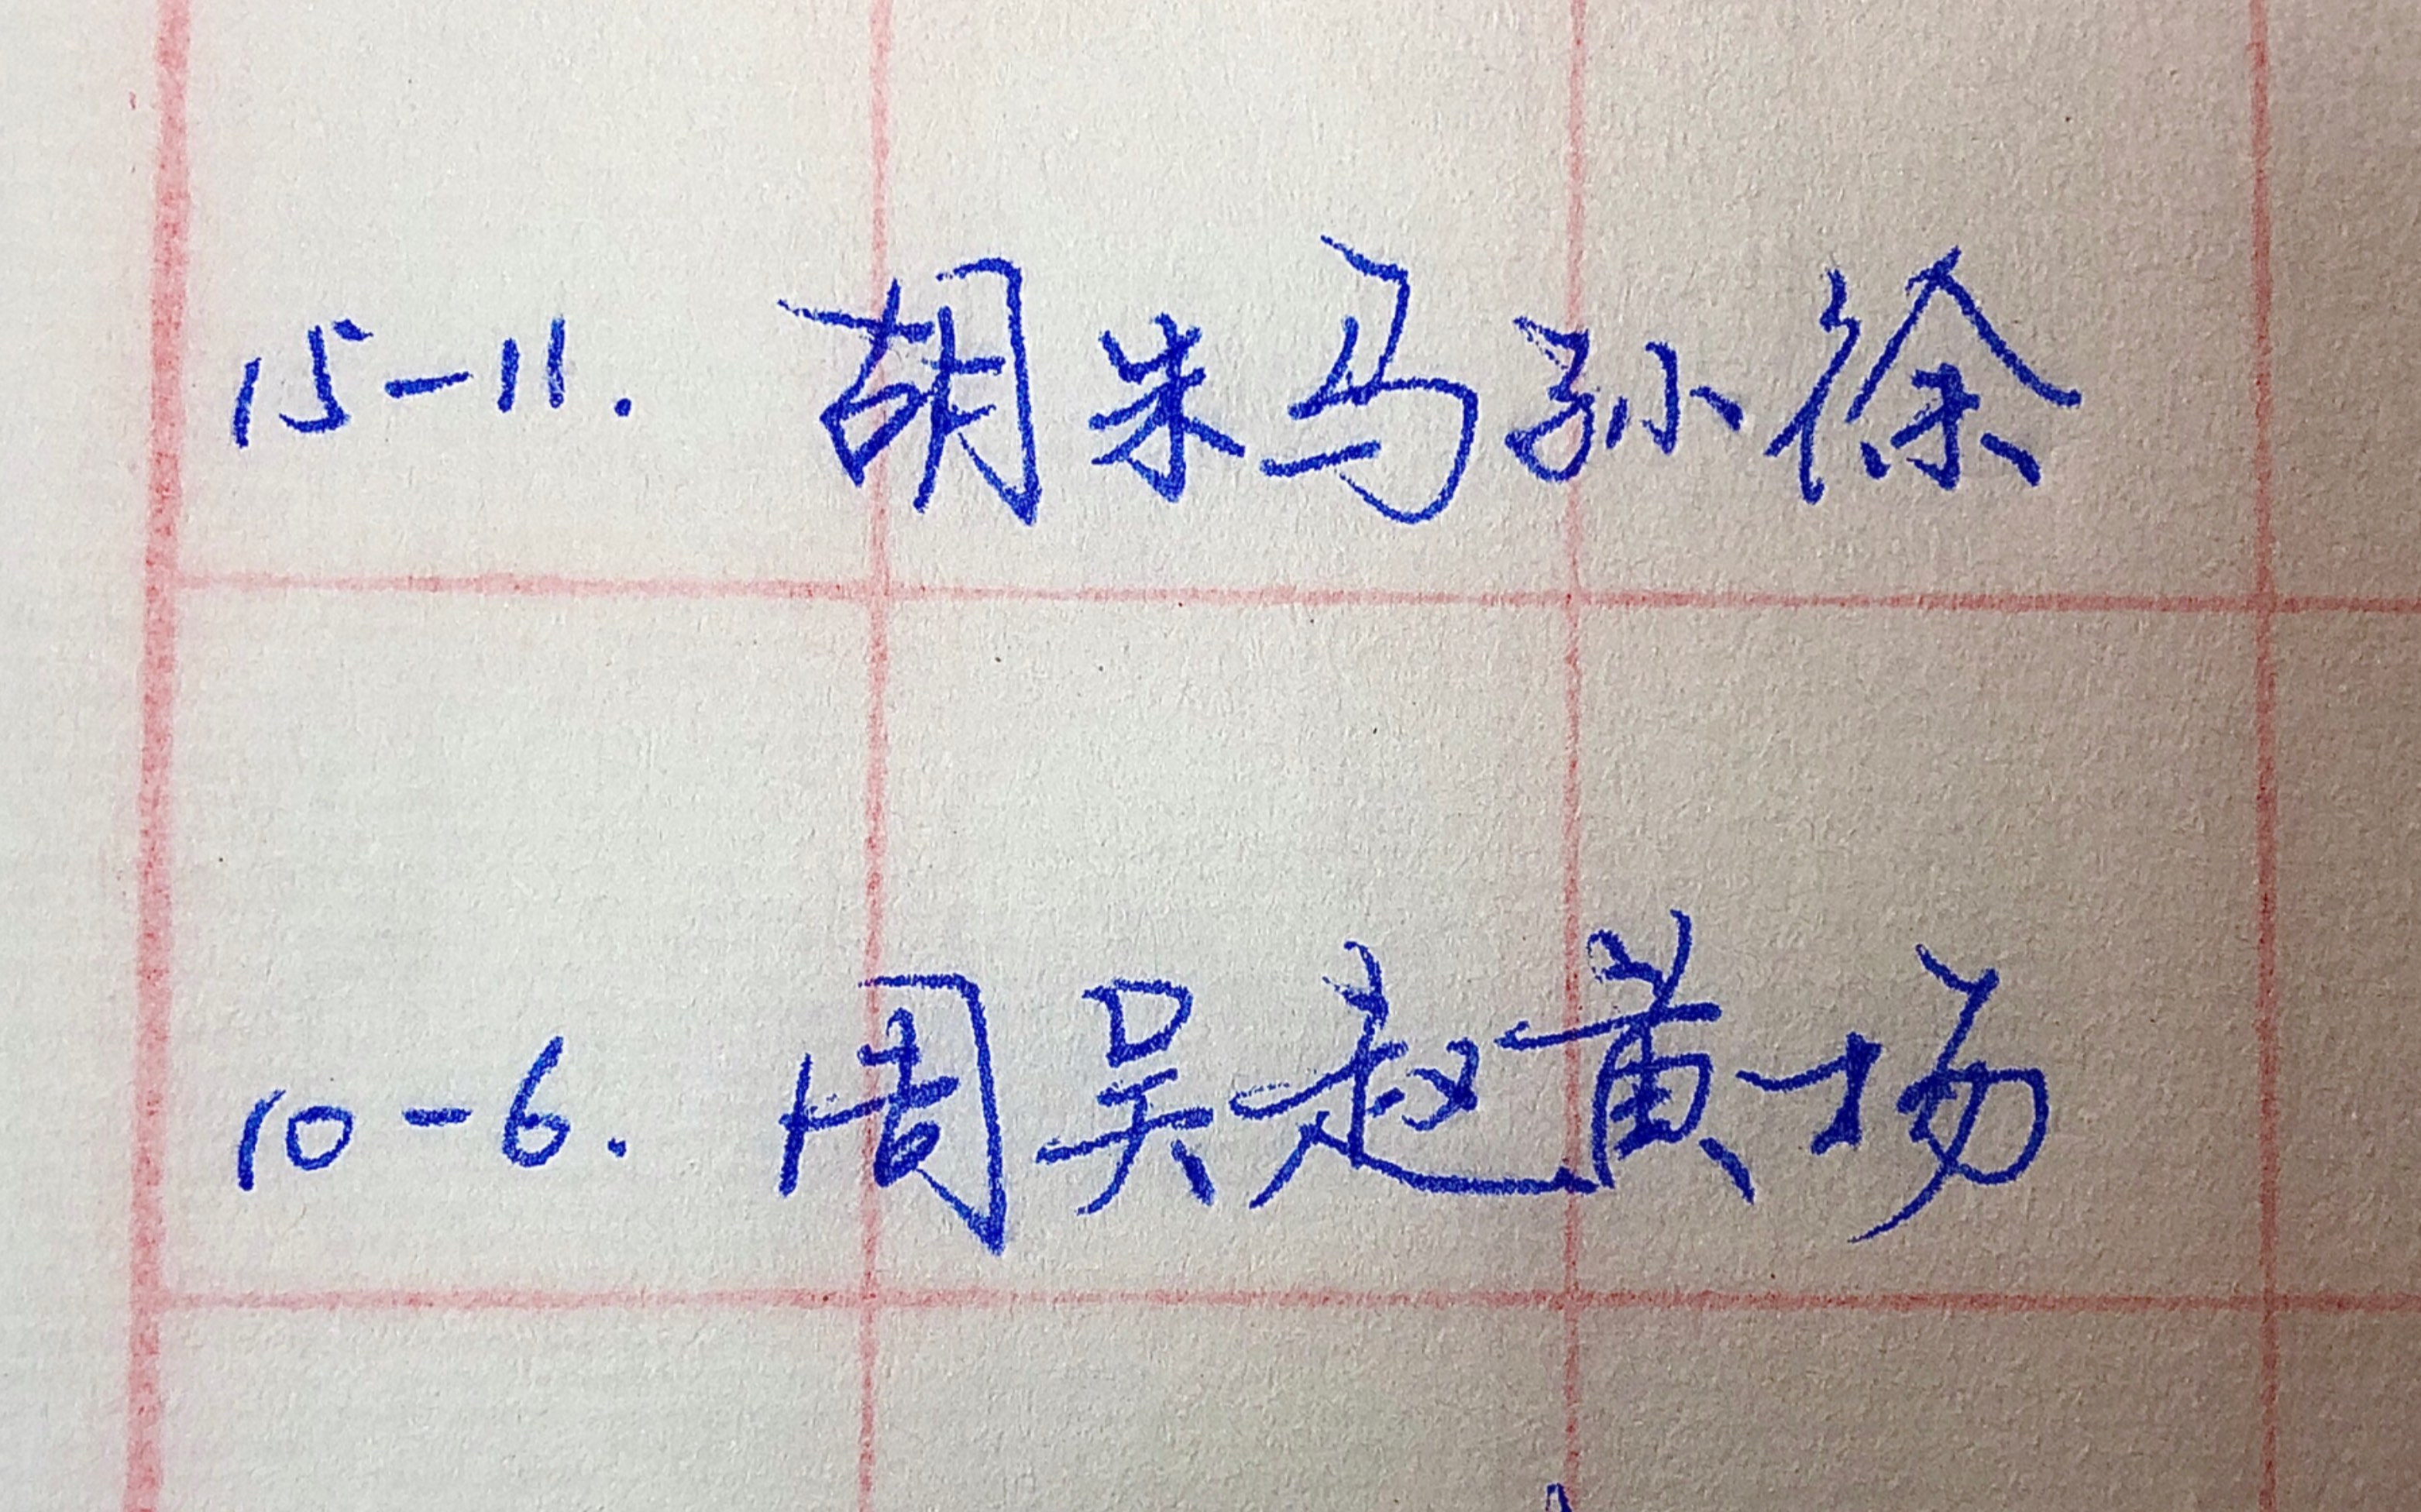 15-11. 胡朱马孙徐
10-6. 周吴赵黄杨